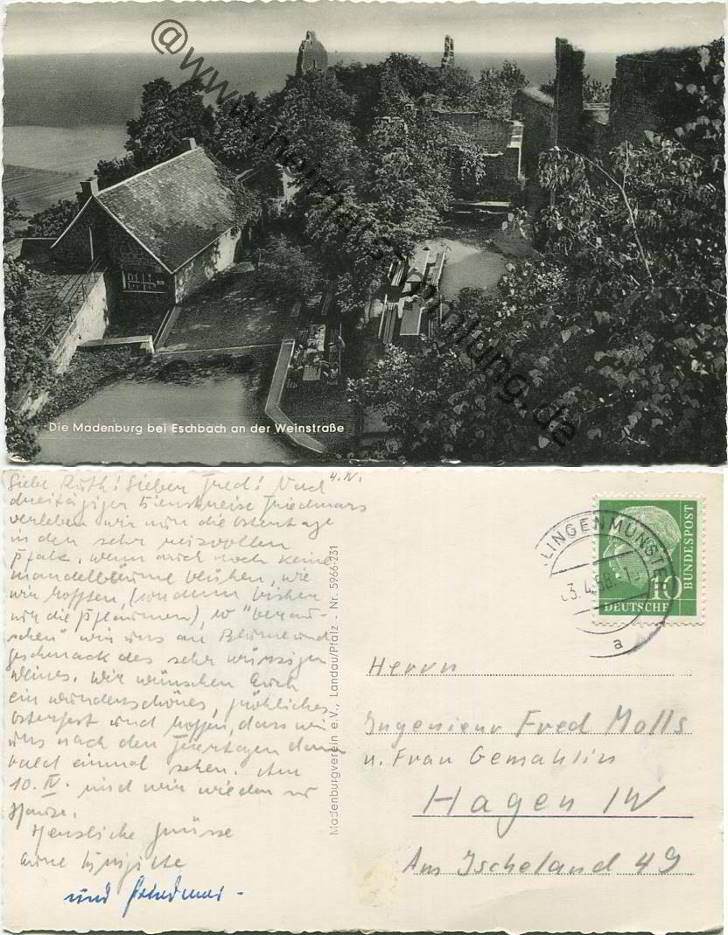 @www.heimatsammlung.de
Die Madenburg bei Eschbach an der Weinstraße
4. IV.
Liebe Ruth! Lieber Fred! Nach
dreitägiger Dienstreise Friedmars
verleben wir nun die Ostertage
in der sehr reizvollen
Pfalz. Wenn auch noch keine
Mandelbäume blühen, wie
wir hofften, (sondern bisher
nur die Pflaumen), so "berau-
schen" wir uns an Blume und
Geschmack des sehr würzigen
Weines. Wir wünschen Euch
ein wunderschönes, fröhliches
Osterfest und hoffen, dass wir
uns nach den Feiertagen dann
bald einmal sehen. Am
10. IV. sind wir wieder zu
Hause.
Herzliche Grüsse
Eure Brigitte
und Friedmar -
Madenburgverein e.V., Landau/Pfalz - Nr. 5966-231
KLINGENMÜNSTER
3.4.58
a
10
DEUTSCHE BUNDESPOST
Herrn
Ingenieur Fred Molls
u. Frau Gemahlin
Hagen IW
Am Ischeland 49